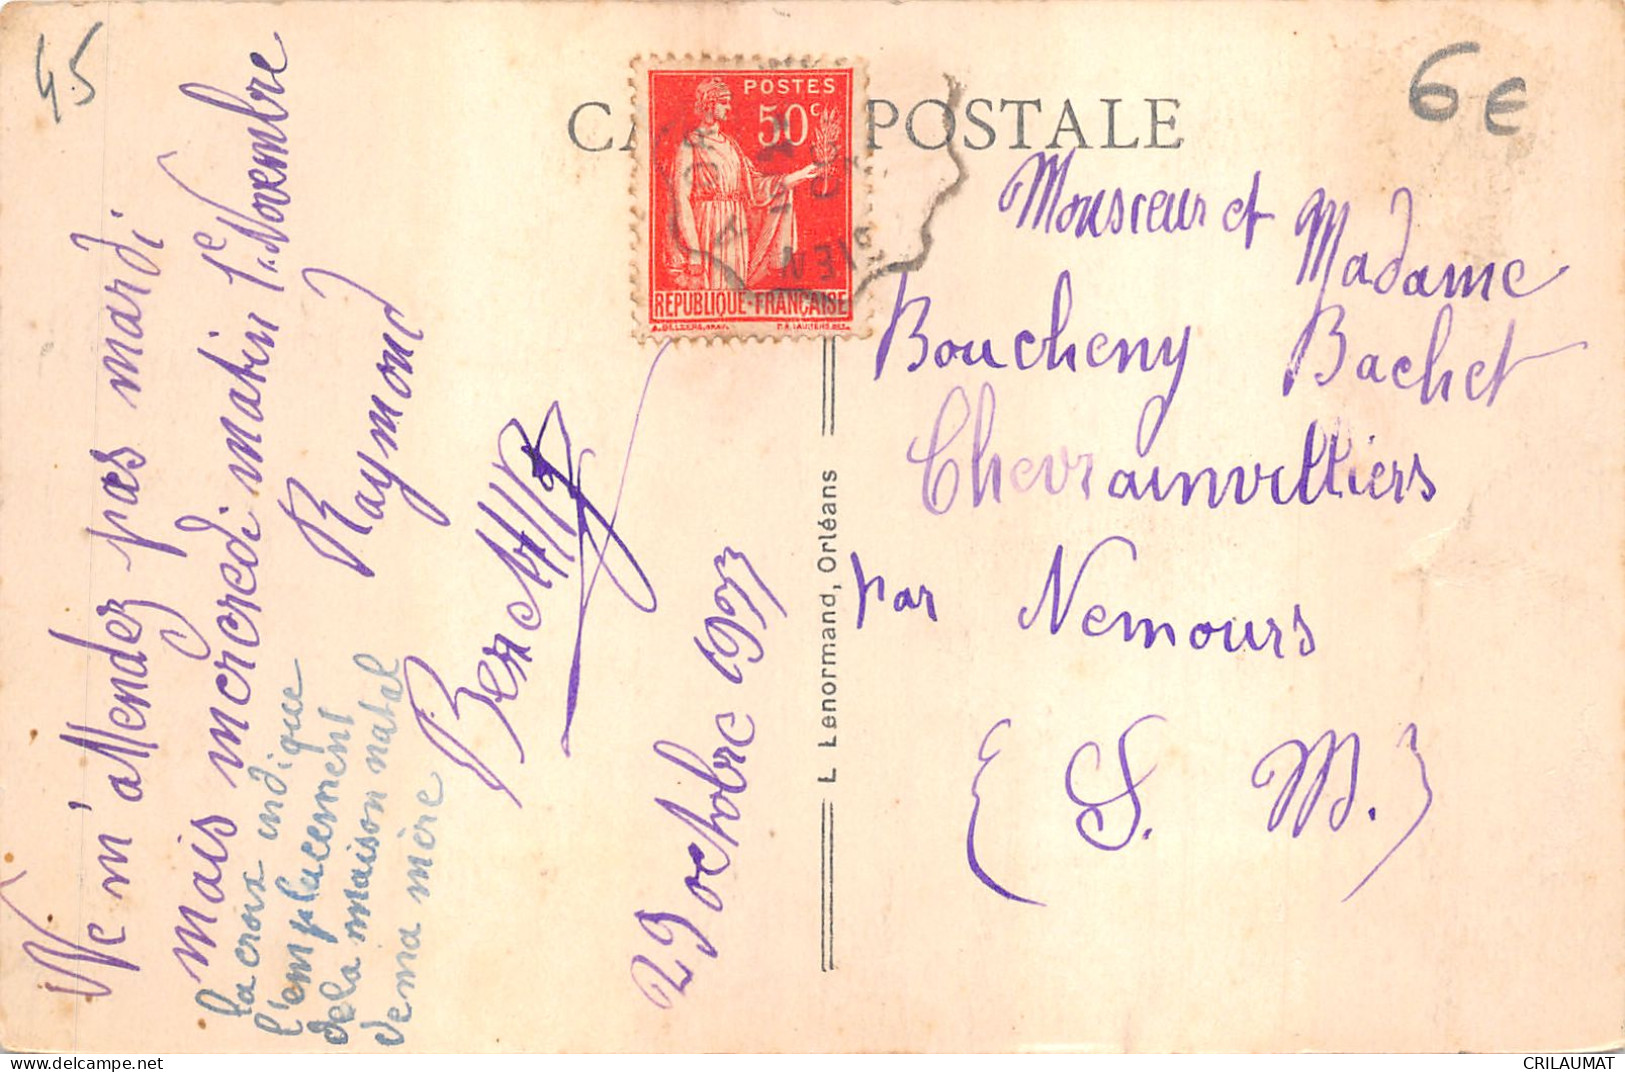 45
6€
CA POSTALE
POSTES
50c
REPUBLIQUE-FRANÇAISE
GIEN
Ne m'attendez pas mardi
mais mercredi matin 1er Novembre
Raymond
la croix indique
l'emplacement
de la maison natal
de ma mère
29 octobre 1933
L Lenormand, Orléans
Monsieur et Madame
Boucheny Bachet
Chevrainvilliers
par Nemours
(S. M.)
CRILAUMAT